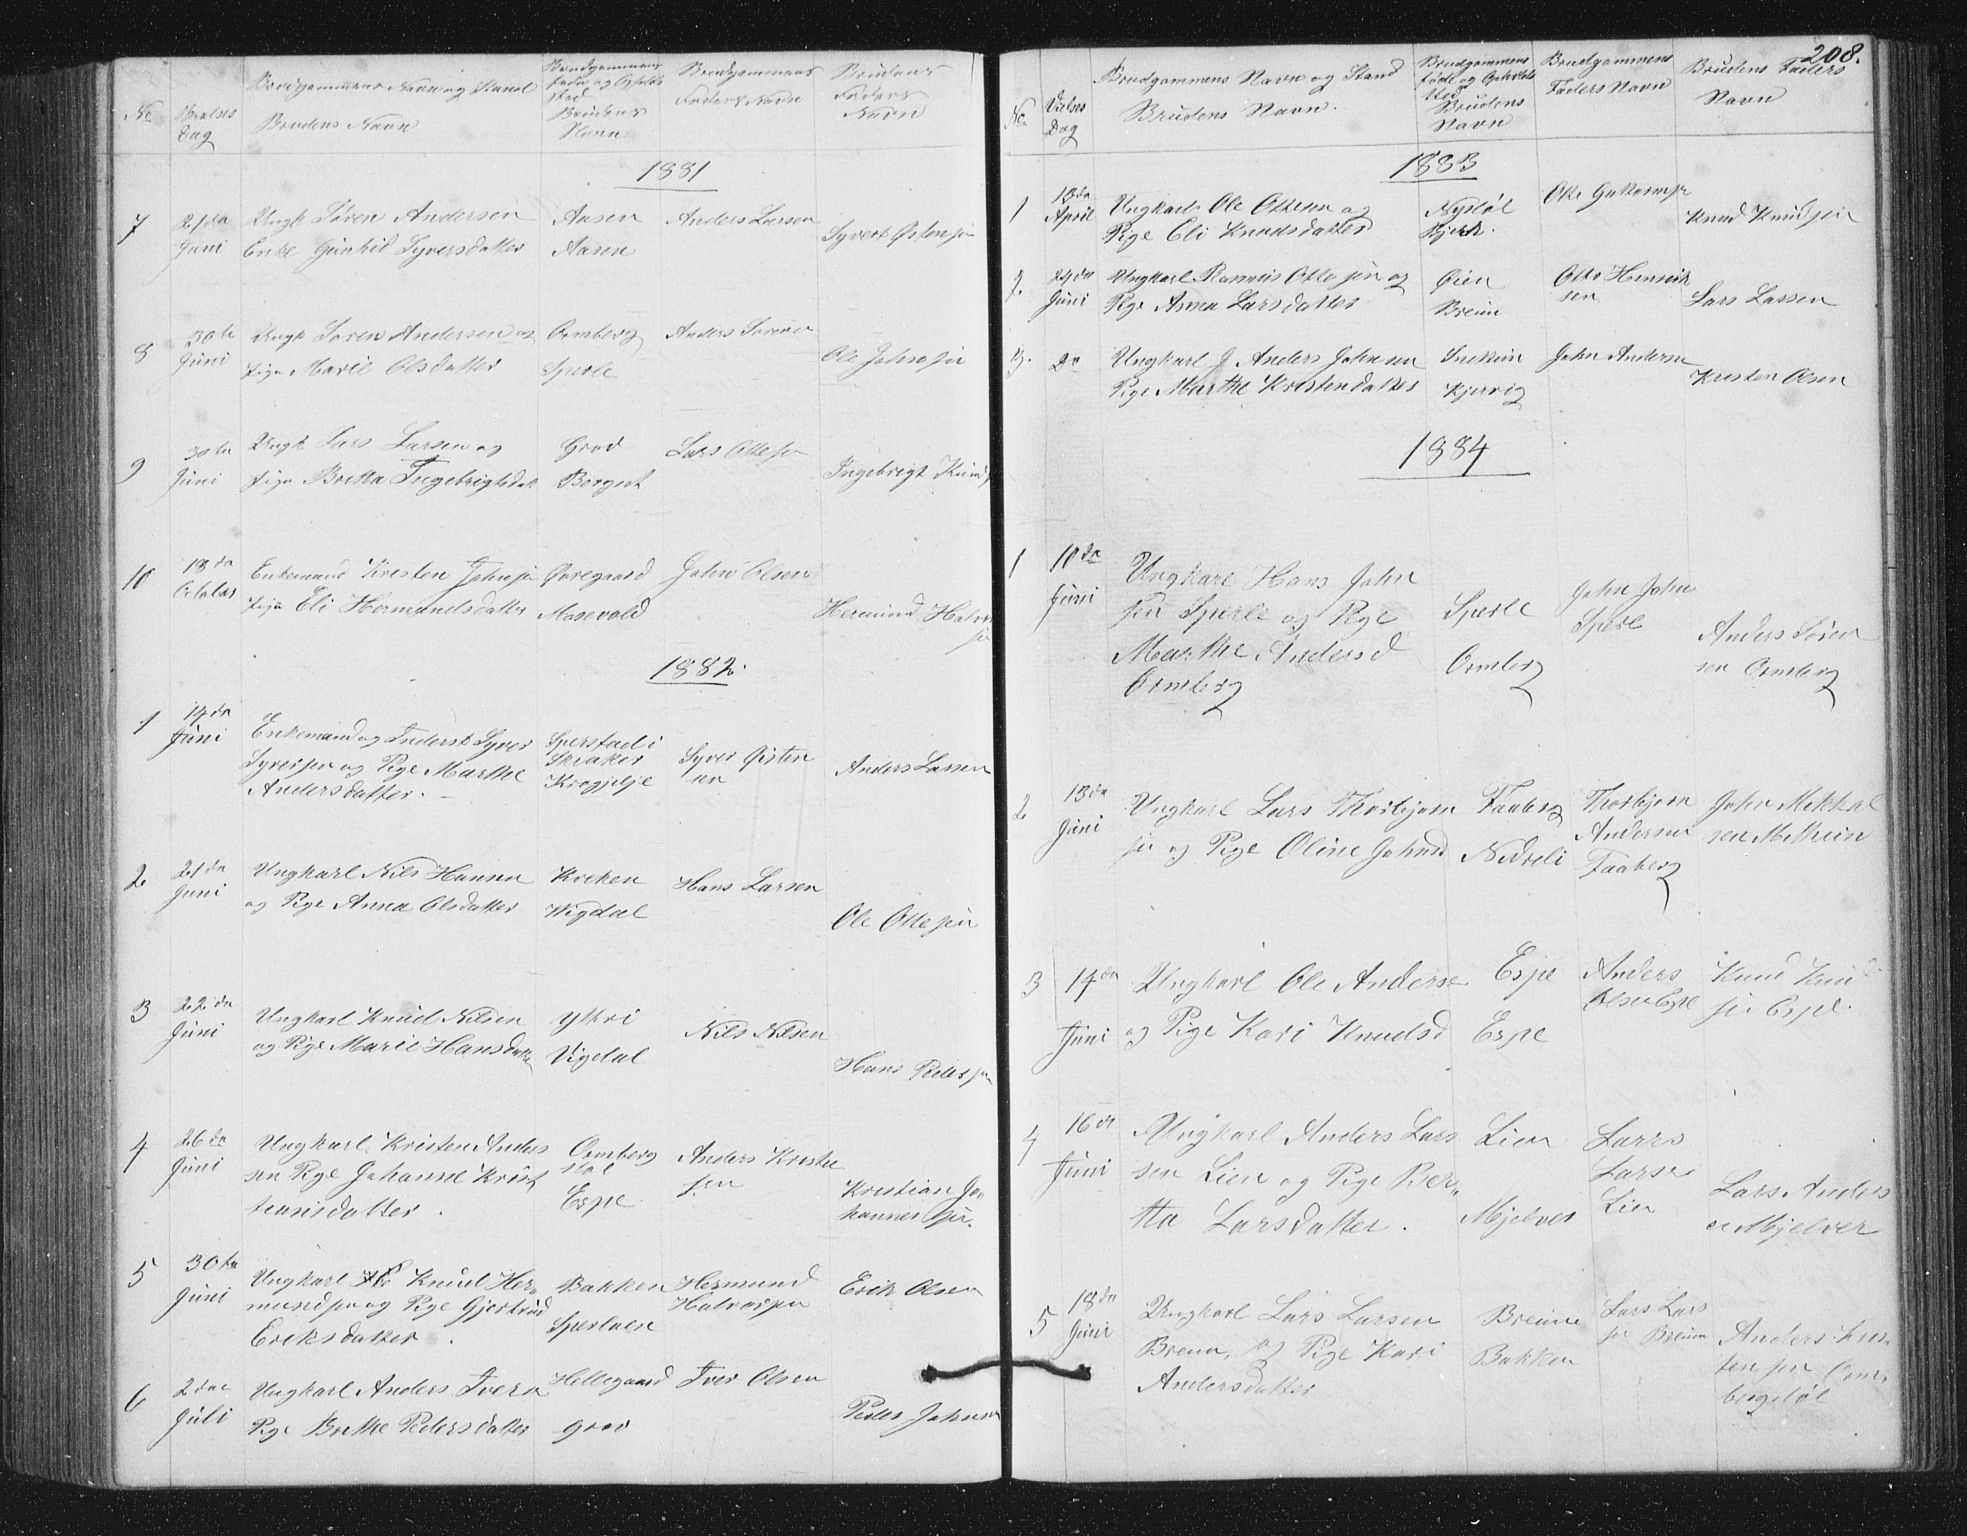 No
Vielses
Dag
Brudgommens Navn og Stand
Brudens Navn
Brudgommens
Brudens
Navn
Brudgommens
Faders Navn
Brudens
Faders
Navn
1881
7
21da
Juni
Ungk Søren Andersen
Enke Gunhild Syversdatter
Aasen
Aasen
Anders Larsen
Syvert Østensen
8
30te
Juni
Ungk Søren Andersen og
Pige Marie Olsdatter
Ormberg
Sperle
Anders Sørensen
Ole Johnsen
9
30te
Juni
Ungk Lars Larsen og
Pige Britta Ingebrigtsdat
Grov
Borgset
Lars Ottesen
Ingebrigt Knuds
10
18da
October
Enkemand Kresten Johnsen
Pige Eli Hermundsdatter
Øvregaard
Mosevold
John Olsen
Hermund Halvor
sen
1882.
1
14da
Juni
Enkemand og Inderst Syver
Syversen og Pige Marthe
Andersdatter.
Sperstad i
Skiaker
Kragjelje
Syver Østen
sen
Anders Larsen
2
21da
Juni
Ungkarl Nils Hansen
og Pige Anna Olsdatter
Kreken
Wigdal
Hans Larsen
Ole Ottesen
3
22da
Juni
Ungkarl Knud Nilsen
og Pige Marie Hansdatte
Ytkri
Vigdal
Nils Nilsen
Hans Peders
4
26da
Juni
Ungkarl Kristen Anders
sen Pige Johanne Krist
iansdatter.
Ormberg
støl
Espe
Anders Kriste
sen
Kristian Jo
hannessen.
5
30te
Juni
Ungkarl Knud Her
mundsen og Pige Gjertrud
Eriksdatter.
Bakken
Sperleen
Hermund
Halvorsen
Erik Olsen
6
2den
Juli
Ungkarl Anders Iversn
Pige Brithe Pedersdatter
Hellegaard
Grov
Iver Olsen
Peder Johnsen
208.
No
Vielses
Dag
Brudgommens Navn og Stand
Brudens Navn.
Brudgommens
Føde og Opholds
sted
Brudens
Navn
Brudgommens
Faders Navn
Brudens Faders
Navn
1883
1
13da
April
Ungkarl Ole Ottesen og
Pige Eli Knudsdatter
Nystøl
Bjerk.
Otte Guttormsen
Knud Knudsen
2.
24da
Juni
Ungkarl Rasmus Ottosen og
Pige Anna Larsdatter
Øien
Breum
Otto Henrik
sen
Lars Larsen
3.
Do
Ungkarl Anders Johnsen
Pige Marthe Kristendatter
Kjerrig
John Andersen
Kresten Olsen
1884
1
10da
Juni
Ungkarl Hans John
sen Sperle og Pige
Marthe Andersd
Ormberg
Sperle
Ormberg
John John
Sperle
Anders Søren
sen Ormberg
2
13da
Juni
Ungkarl Lars Thorbjørn
sen og Pige Oline Johnsd
Faaberg
Nedreli
Thorbjørn
Andersen
Faaberg
John Mikkel
sen
3
14da
Juni
Ungkarl Ole Anderse
og Pige Kari Knudsd
Espe
Espe
Anders
Olsen Espe
Knud Knud
sen Espe.
4
16da
Juni
Ungkarl Anders Lars
sen Lien og Pige Ber"
tta Larsdatter.
Lien
Mjelver
Lars
Larsen
Lien
Lars Anders
en Mjelver
5
18da
Juni
Ungkarl Lars Larsen
Breum, og Pige Kari
Andersdatter
Breum
Bakken
Lars Lars
sen Breum
Anders
sen Orm
bergstøl